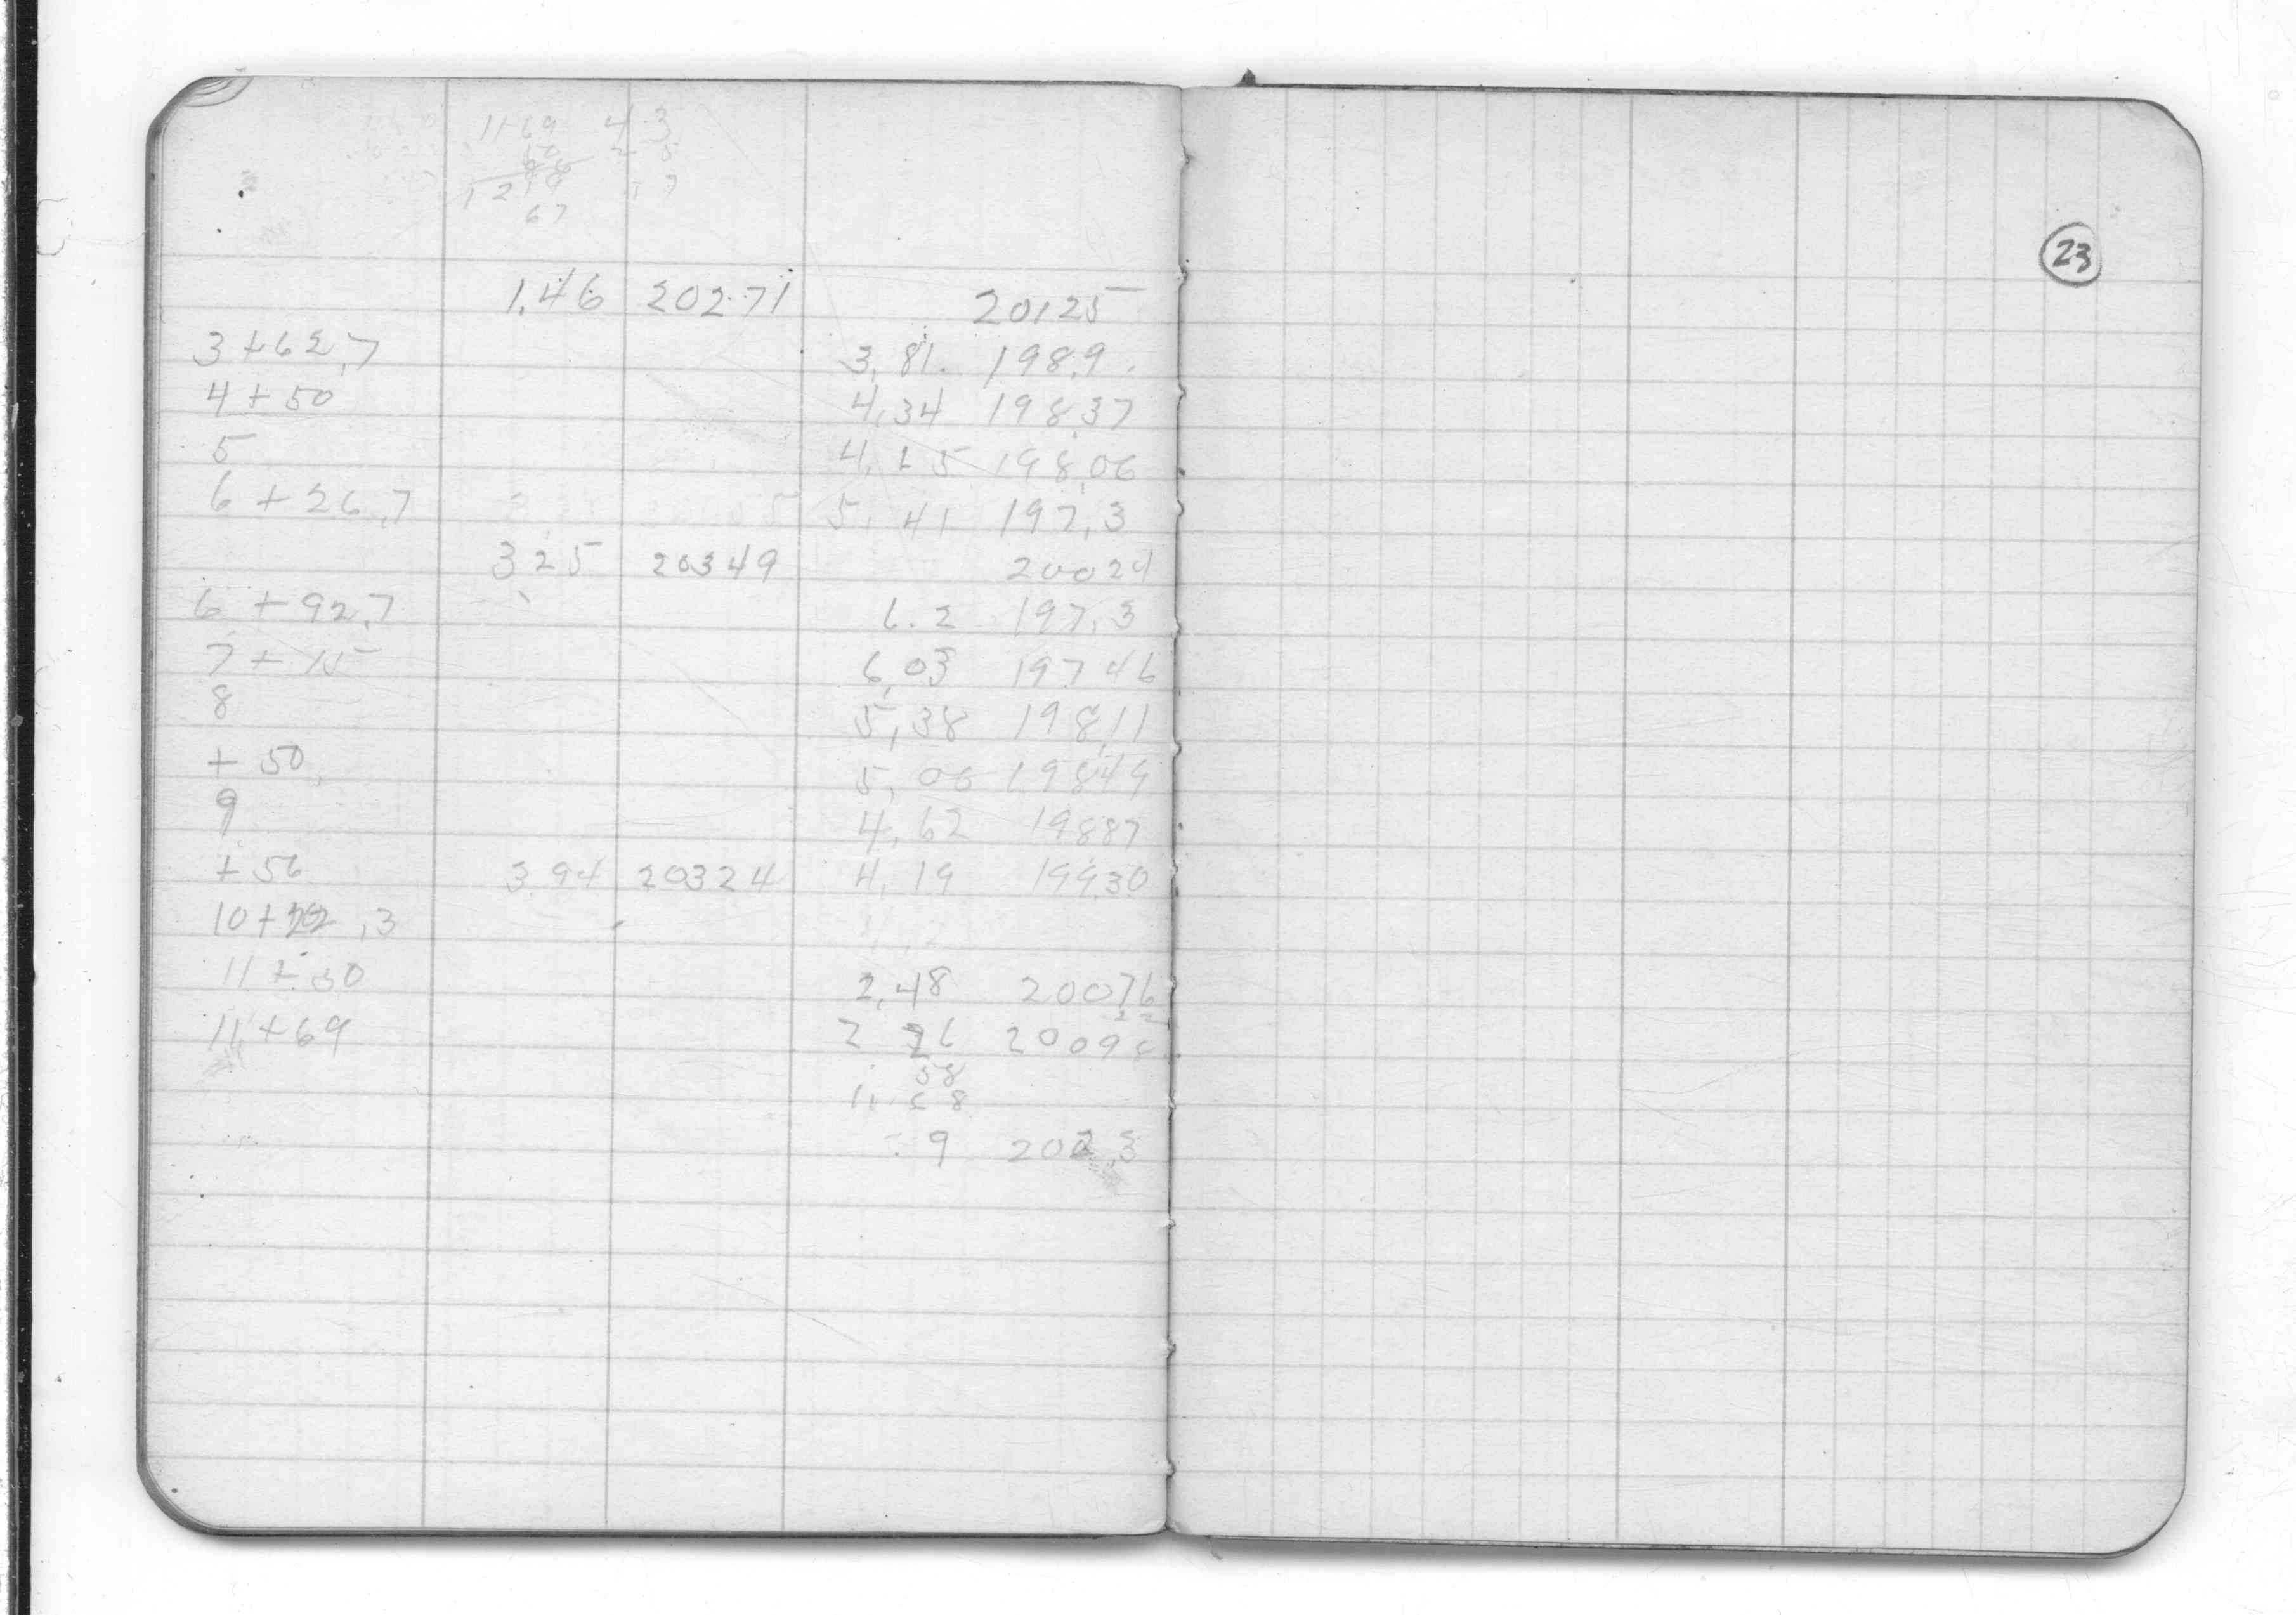 1169 43
67
23
1.46 20271 20125
3+62.7 3,81. 198,9.
4+50 4,34 198,37
5 198,06
6+26,7 5,41 197,3
325 20349 20024
6+92,7 6.2 197,3
7+15 6,03 197 46
8 5,38 198,11
+50 5,06 19849
9 4,62 19887
+56 3.94 20324 4,19 199,30
10+ ,3
11+30 2,48 20076
11+69 2 20098
58
9